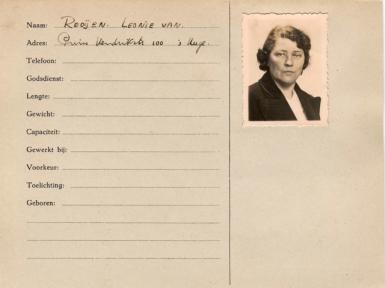 Naam: ROOIJEN. LEONIE VAN.
Adres: Prins Hendrikstr 100 's Hage.
Telefoon:
Godsdienst:
Lengte:
Gewicht:
Capaciteit:
Gewerkt bij:
Voorkeur:
Toelichting:
Geboren: